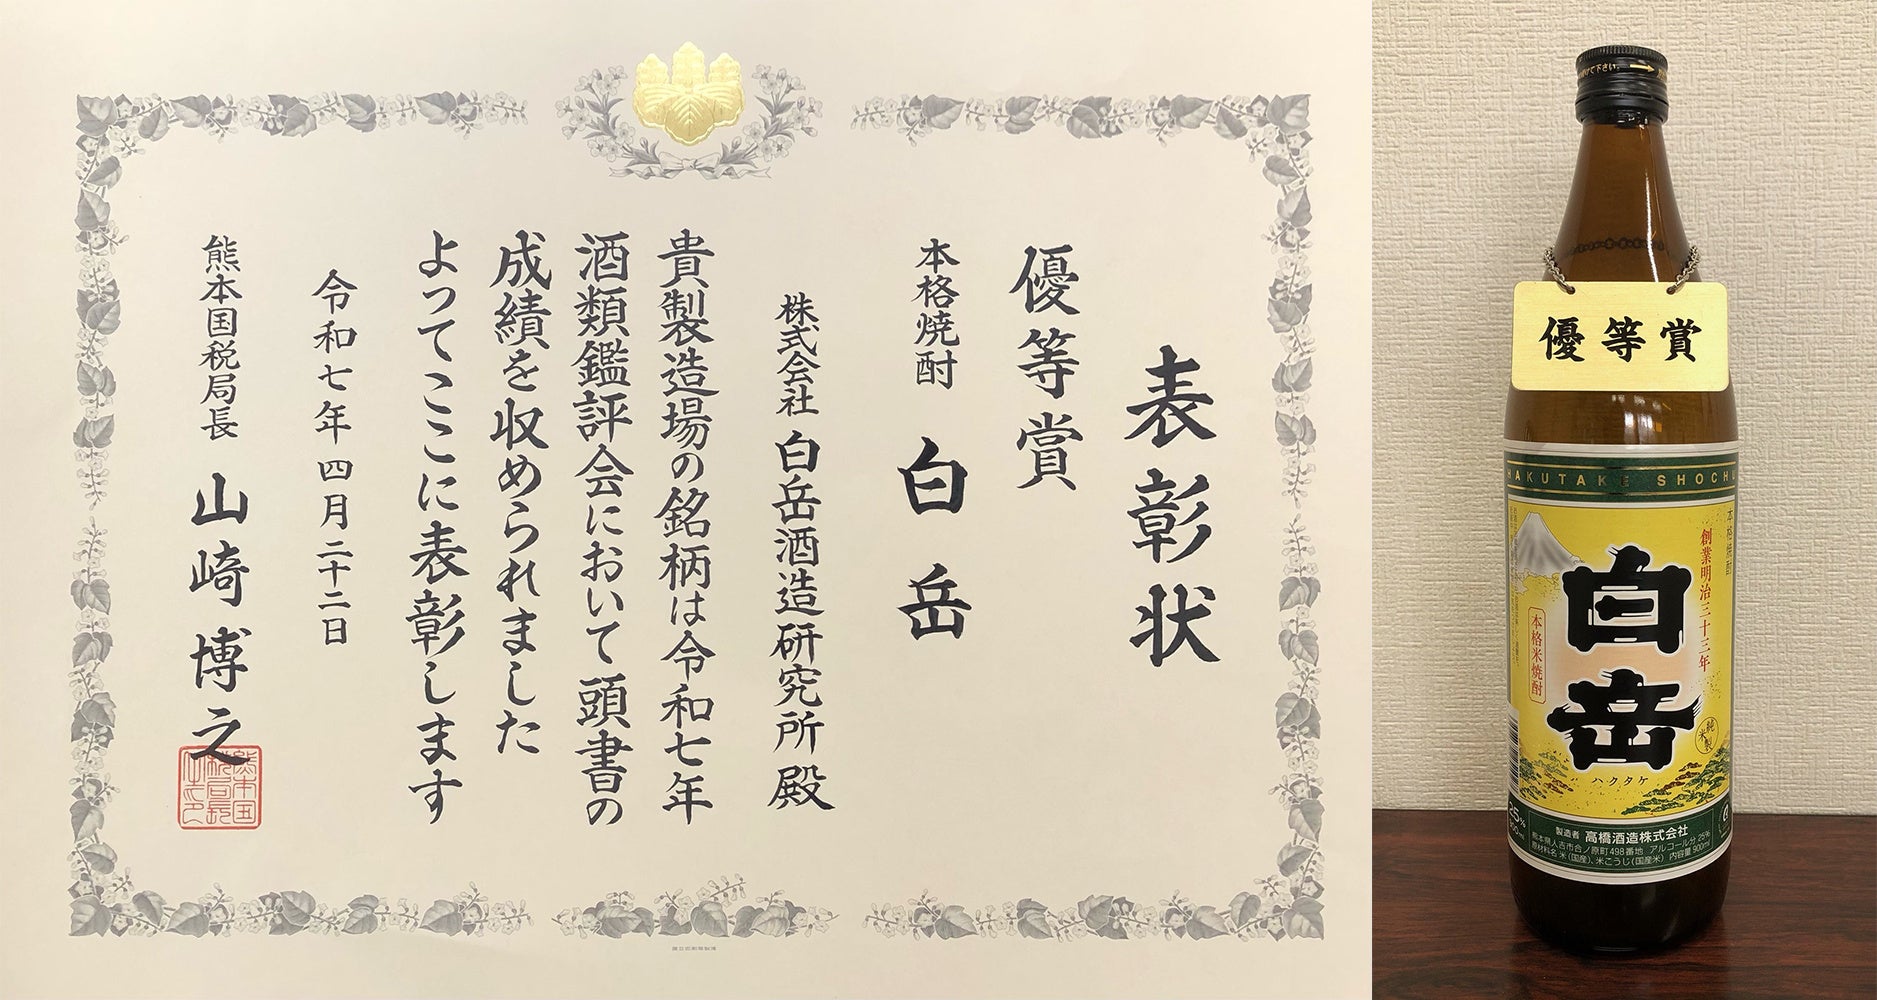 表彰状
優等賞
本格焼酎 白岳
株式会社 白岳酒造研究所 殿
貴製造場の銘柄は令和七年
酒類鑑評会において頭書の
成績を収められました
よってここに表彰します
令和七年四月二十二日
熊本国税局長 山崎博之
優等賞
HAKUTAKE SHOCHU
本格焼酎
創業明治三十三年
白岳
本格米焼酎
純米製
ハクタケ
製造者 高橋酒造株式会社
熊本県人吉市合ノ原町498番地 アルコール分 25%
原材料名 米(国産)、米こうじ(国産米) 内容量 900ml
25%